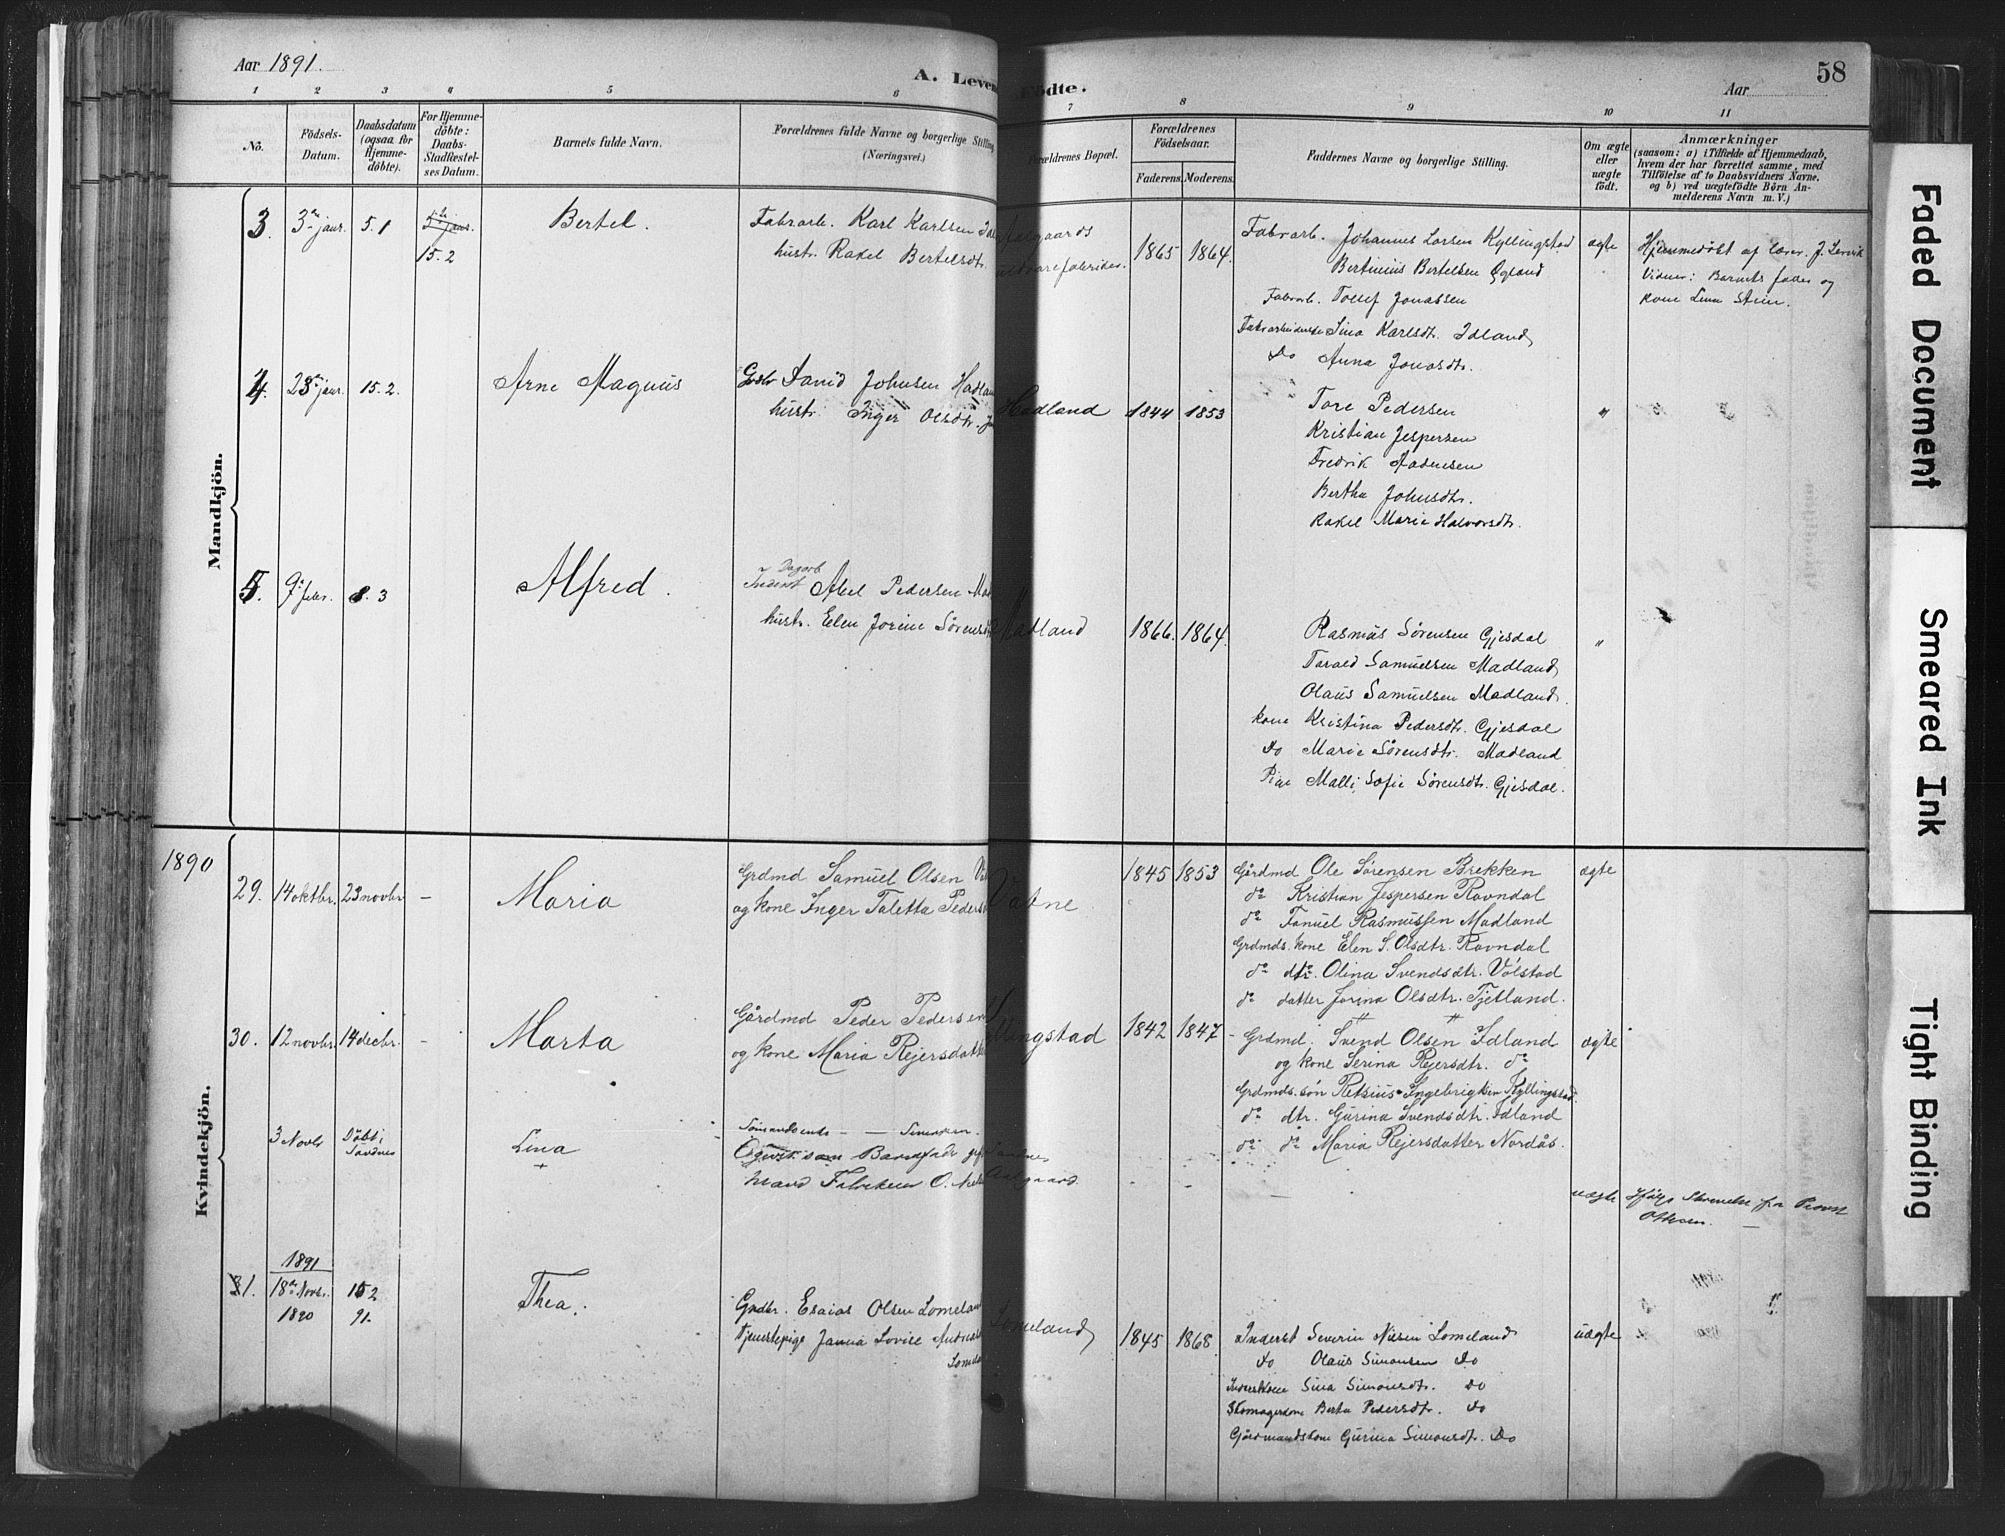 Aar 1891.
A. Leven
Födte.
Aar
58
1 2 3 4 5 6 7 8 9 10 11
No.
Födsels-
Datum.
Daabsdatum
(ogsaa for
Hjemme-
döbte).
For Hjemme-
döbte:
Daabs-
Stadfæstel-
ses Datum.
Barnets fulde Navn.
Forældrenes fulde Navne og borgerlige Stilling
(Næringsvei.)
Forældrenes Bopæl.
Forældrenes
Födselsaar.
Faderens. Moderens.
Faddernes Navne og borgerlige Stilling.
Om ægte
eller
uægte
födt.
Anmærkninger
(saasom: a) i Tilfælde af Hjemmedaab,
hvem der har forrettet samme, med
Tilföielse af to Daabsvidners Navne,
og b) ved uægtefödte Börn An-
melderens Navn m. V.)
Mandkjön.
3. 3 jaur. 5.1
15.2
Bertel.
Fabrarb. Karl Karlsen
hustr. Rakel Bertelsdtr.
Aalgaards
1865 1864.
Fabrarb. Johannes Larsen Kyllingstad
Bertinius Bertelsen Øgland
Fabrarb. Tollef Jonassen
Fabrarbeiderske Sina Karlsdtr. Idland
do Anna Jonasdtr.
ægte
Hjemmedøbt af lærer J. Lervik
Vidner: Barnets fader og
kone Lina Stein.
4. 23 jaur. 15.2.
Arne Magnus
David Johnsen Hadland
hustr. Inger Olsdtr.
Hadland
1844 1853
Tore Pedersen
Kristian Jespersen
Fredrik Aadnesen
Bertha Johnsdtr.
Rakel Marie Halvorsdtr.
"
5. 9 febr. 8.3
Alfred.
Dagarb
Inderst Abel Pedersen
hustr. Elen Jorine Sørensdtr
Madland
1866. 1864.
Rasmus Sørensen Gjesdal
Torald Samuelsen Madland
Olaus Samuelsen Madland.
kone Kristina Pedersdtr. Gjesdal
do Marie Sørensdtr. Madland
Pige Malli Sofie Sørensdtr. Gjesdal.
"
Kvindekjön.
1890
29. 14 oktbr. 23 novbr –
Maria
Grdmd Samuel Olsen
og kone Inger Taletta Peders
Vatne
1845 1853
Gårdmd Ole Sørensen Brekken
do Kristian Jespersen Ravndal
do Tanuel Rasmussen Madland
Grdmds. kone Elen S. Olsdtr. Ravndal
do dtr. Olina Svendsdtr. Vølstad
do datter Jorina Olsdtr. Tjetland.
ægte
30. 12 novbr. 14 decbr. –
Marta
Gårdmd Peder Pedersen
og kone Maria Rejersdatter
llingstad
1842 1847
Grdmd. Svend Olsen Idland
og kone Serina Rejersdtr. do
Grdmds. søn Retsius Ingebrigtsen Kyllingstad.
do dtr. Gurina Svendsdtr. Idland
do do Maria Rejersdatter Nordås.
ægte
3 Novbr Döbt i
Sandnes
Lina
+
som Barnefader
Sandnes
Aalgaard.
uægte
Ifølge Skrivelse fra Provst
31. 1891
18 Novbr.
1890
15 2
91.
Thea.
Esaias Olsen Lomeland
Tjenestepige Janna Lovise
Lomeland
1845 1868
Inderst Severin Nilsen Lomeland
do Olaus Simonsen do
Inderstkone Sina Simonsdtr. do
Skomagerkone Berta Pedersdtr. do
Gårdmandskone Gurina Simonsdtr. do
uægte
Faded Document
Smeared Ink
Tight Binding